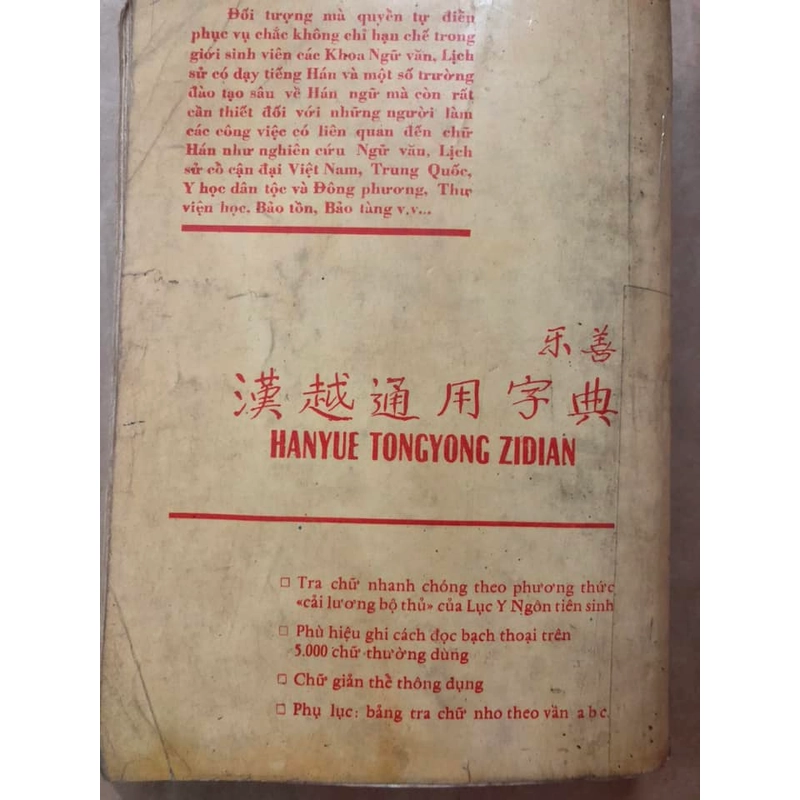 Đối tượng mà quyền tự điều
phục vụ chắc không chỉ hạn chế trong
giới sinh viên các Khoa Ngữ văn, Lịch
sử có dạy tiếng Hán và một số trường
đào tạo sâu về Hán ngữ mà còn rất
cần thiết đối với những người làm
các công việc có liên quan đến chữ
Hán như nghiên cứu Ngữ văn, Lịch
sử cổ cận đại Việt Nam, Trung Quốc,
Y học dân tộc và Đông phương, Thư
viện học, Bảo tồn, Bảo tàng v.v...
乐善
漢越通用字典
HANYUE TONGYONG ZIDIAN
□ Tra chữ nhanh chóng theo phương thức
«cải lương bộ thủ» của Lục Y Ngôn tiên sinh
□ Phù hiệu ghi cách đọc bạch thoại trên
5.000 chữ thường dùng
□ Chữ giản thể thông dụng
□ Phụ lục: bảng tra chữ nho theo vần a b c.